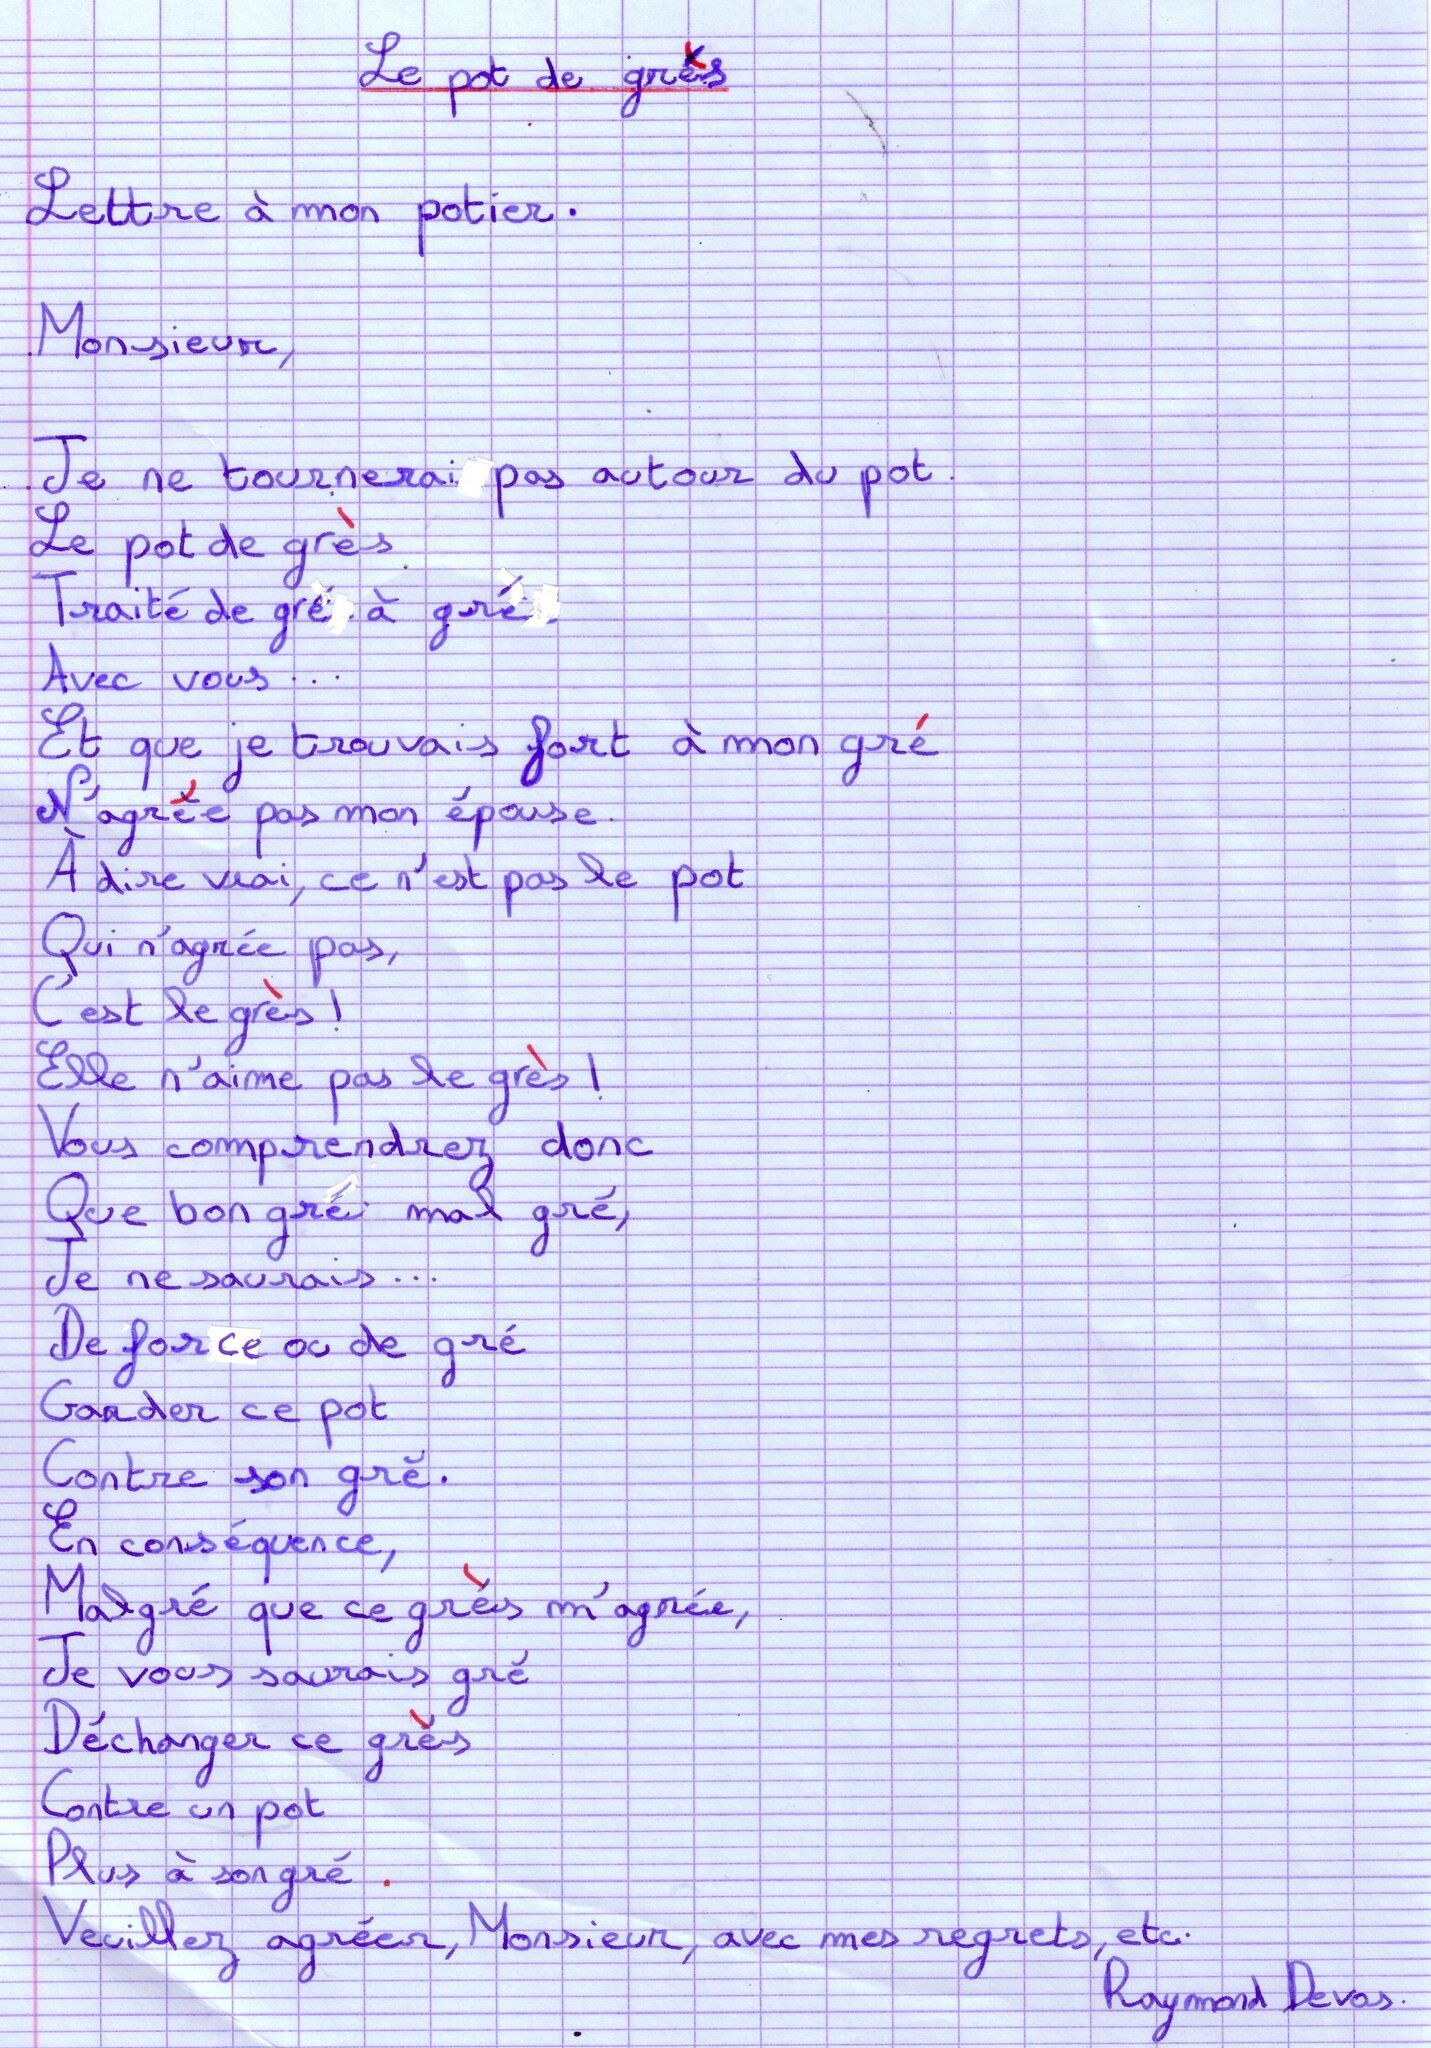 Le pot de grès
Lettre à mon potier.
Monsieur,
Je ne tournerai pas autour du pot.
Le pot de grès
Traité de gré à gré
Avec vous...
Et que je trouvais fort à mon gré
N'agrée pas mon épouse.
À dire vrai, ce n'est pas le pot
Qui n'agrée pas,
C'est le grès !
Elle n'aime pas le grès !
Vous comprendrez donc
Que bon gré mal gré,
Je ne saurais...
De force ou de gré
Garder ce pot
Contre son gré.
En conséquence,
Malgré que ce grès m'agrée,
Je vous saurais gré
Déchanger ce grès
Contre un pot
Plus à son gré.
Veuillez agréer, Monsieur, avec mes regrets, etc.
Raymond Devos.